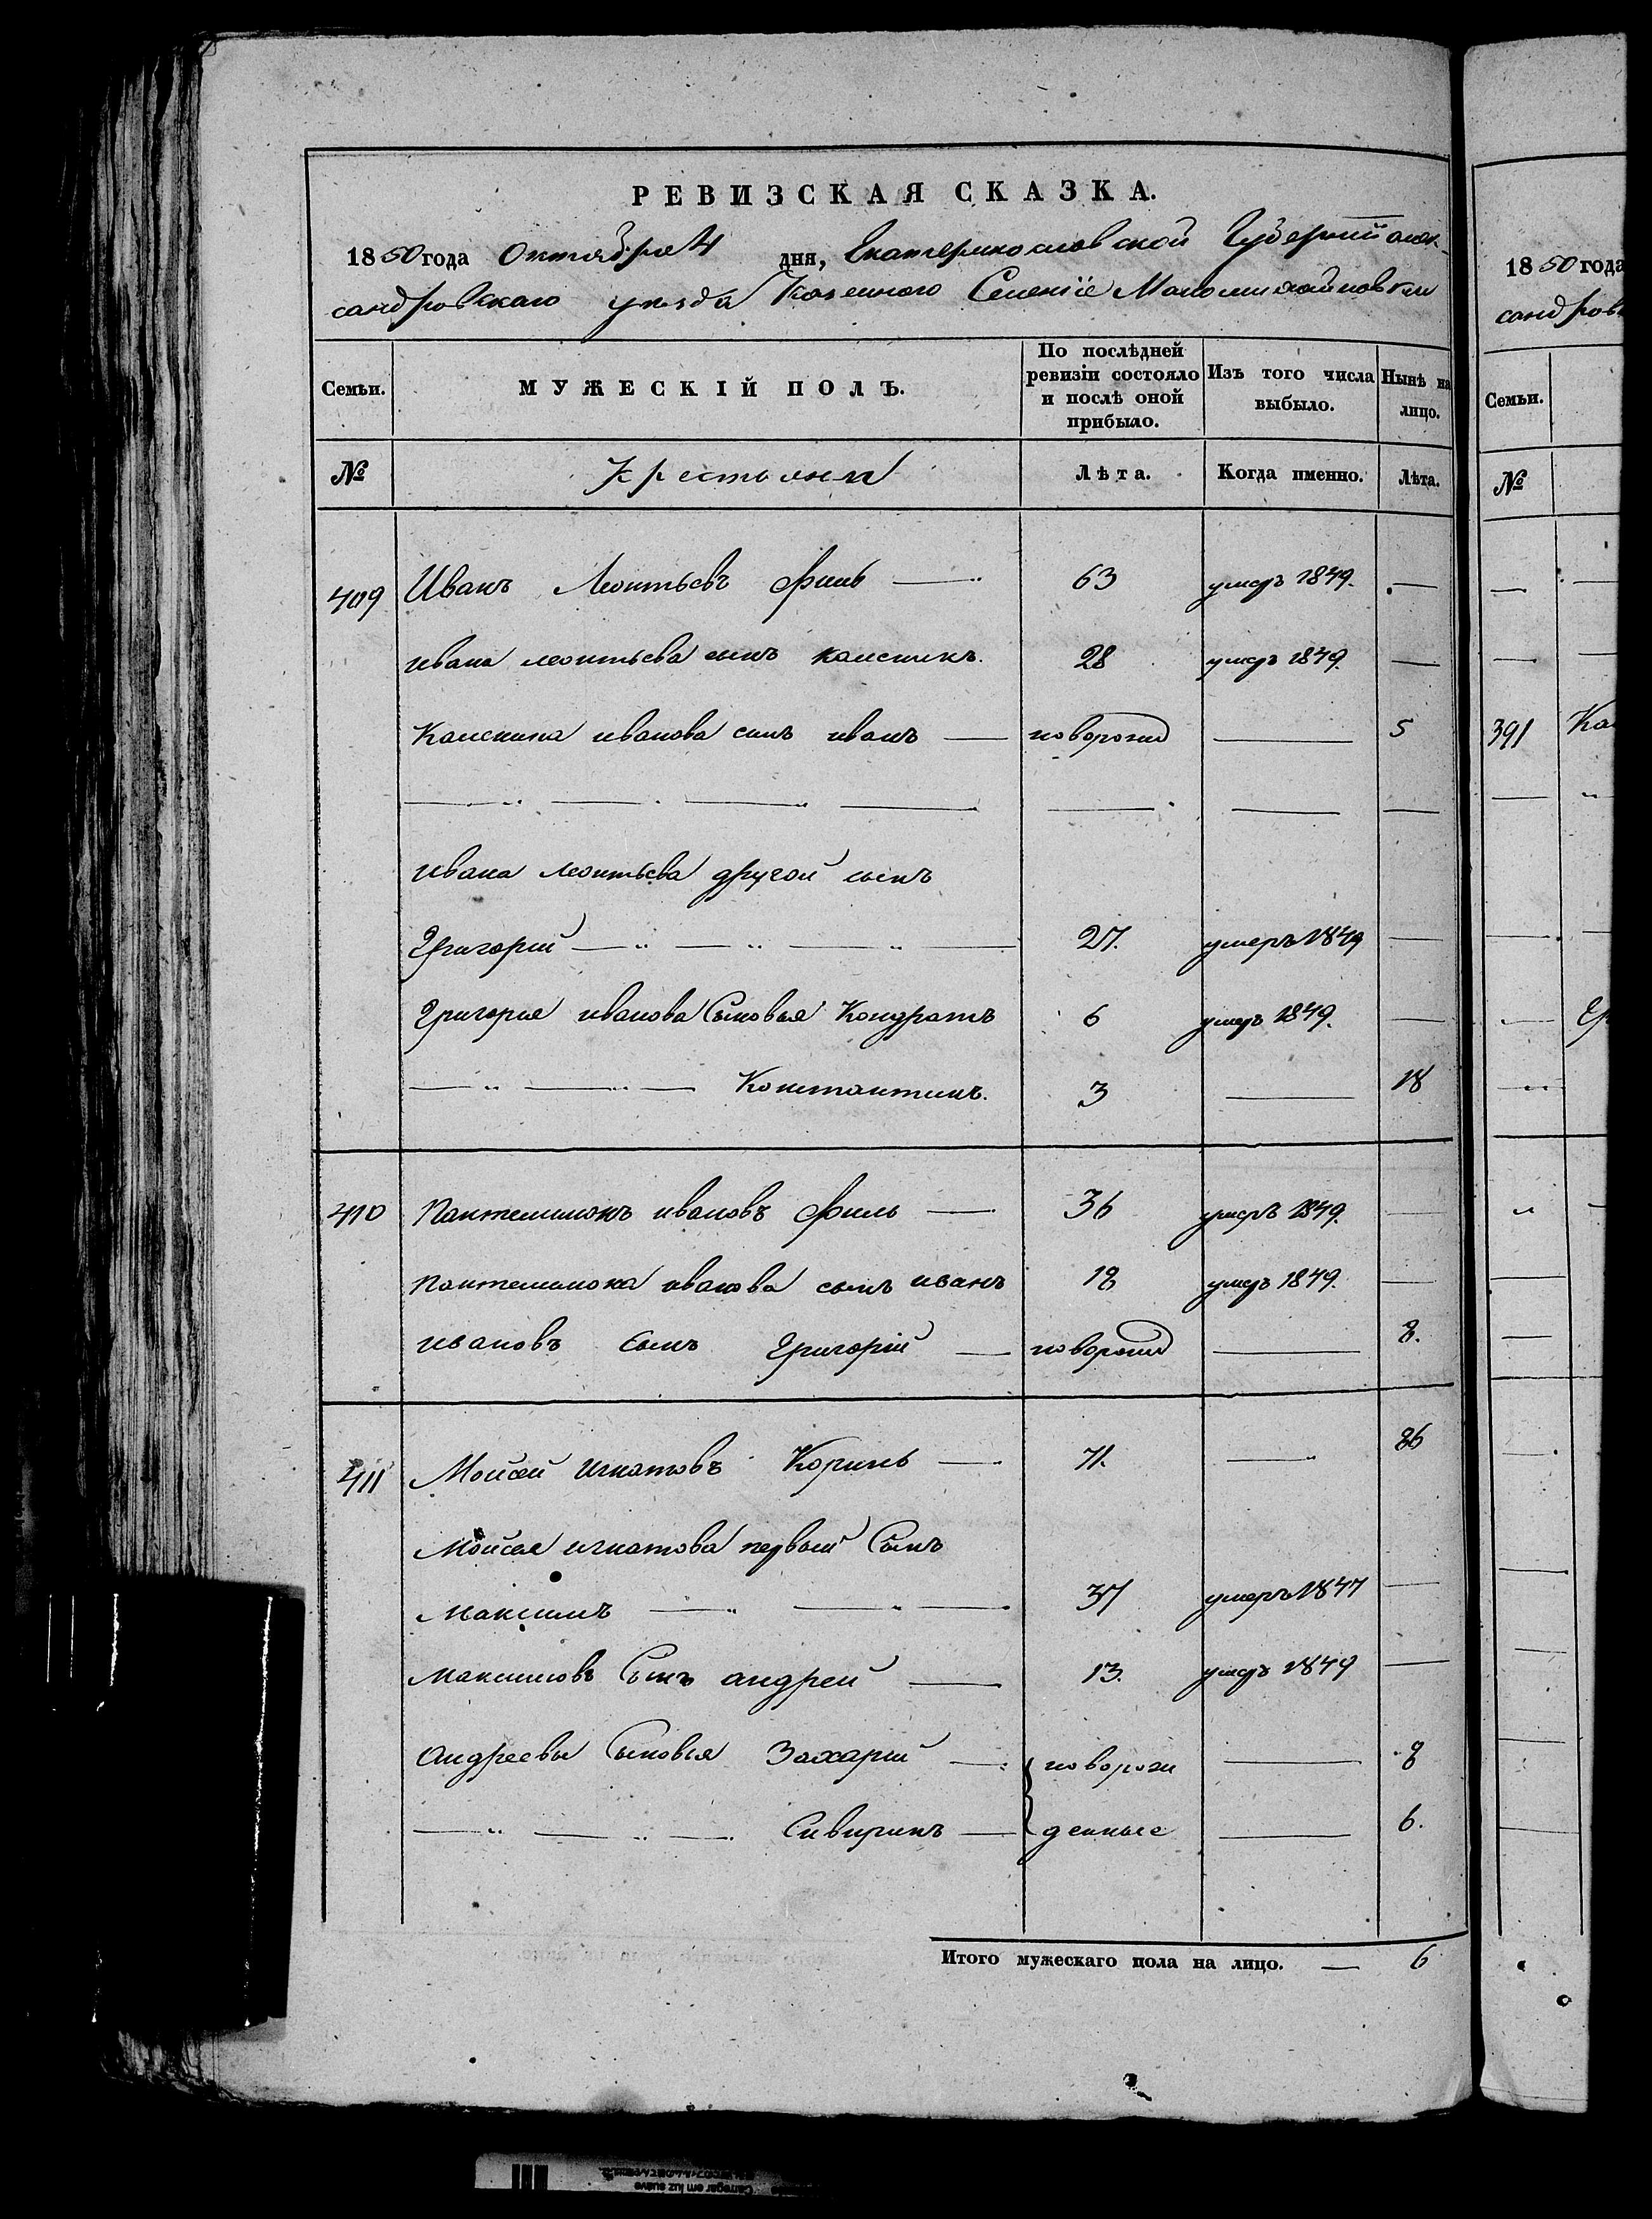 РЕВИЗСКАЯ СКАЗКА.
1850 года Октября 4 дня, Екатеринославской Губернии Алек-
сандровскаго уезда Казенного Селение Маломихайловки
Семьи. МУЖЕСКІЙ ПОЛЪ. По послѣдней ревизіи состояло и послѣ оной прибыло. Изъ того числа выбыло. Нынѣ на лицо.
№ Крестьяни Лѣта. Когда именно. Лѣта.
409 Иванъ Леонтьевъ Филь — 63 умеръ 1849. —
ивана леонтьева сынъ 28 умеръ 1849. —
иванова сынъ иванъ — новорожд — 5
ивана леонтьева другой сынъ
Григорий — 27. умеръ 1849 —
Григорья иванова Сыновья Кондратъ 6 умеръ 1849. —
— Константинъ. 3 — 18
410 Пантелимонъ ивановъ Филь — 36 умеръ 1849. —
Пантелимона иванова сынъ иванъ 18 умеръ 1849. —
ивановъ сынъ Григорій — новорожд — 8.
411 Мойсей игнатовъ Коринь — 71. — 86
Мойсея игнатова первый Сынъ
Максимъ — 37 умеръ 1847 —
Максимовъ Сынъ андрей — 13. умеръ 1849 —
Андреевы Сыновья Захарий — новорож — 8
— Сивиринъ — денные — 6.
Итого мужескаго пола на лицо. — 6
1850 года
сандров
Семьи.
№
391 Ка